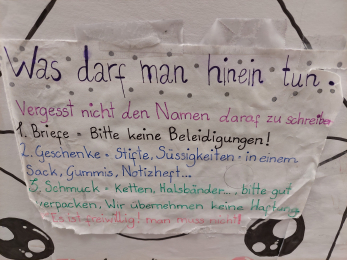 Was darf man hinein tun.
Vergesst nicht den Namen darauf zu schreiben
1. Briefe - Bitte keine Beleidigungen!
2. Geschenke - Stifte, Süssigkeiten in einem
Sack, Gummis, Notizheft...
3. Schmuck - Ketten, Halsbänder..., bitte gut
verpacken, Wir übernehmen keine Haftung
Es ist freiwillig! man muss nicht!